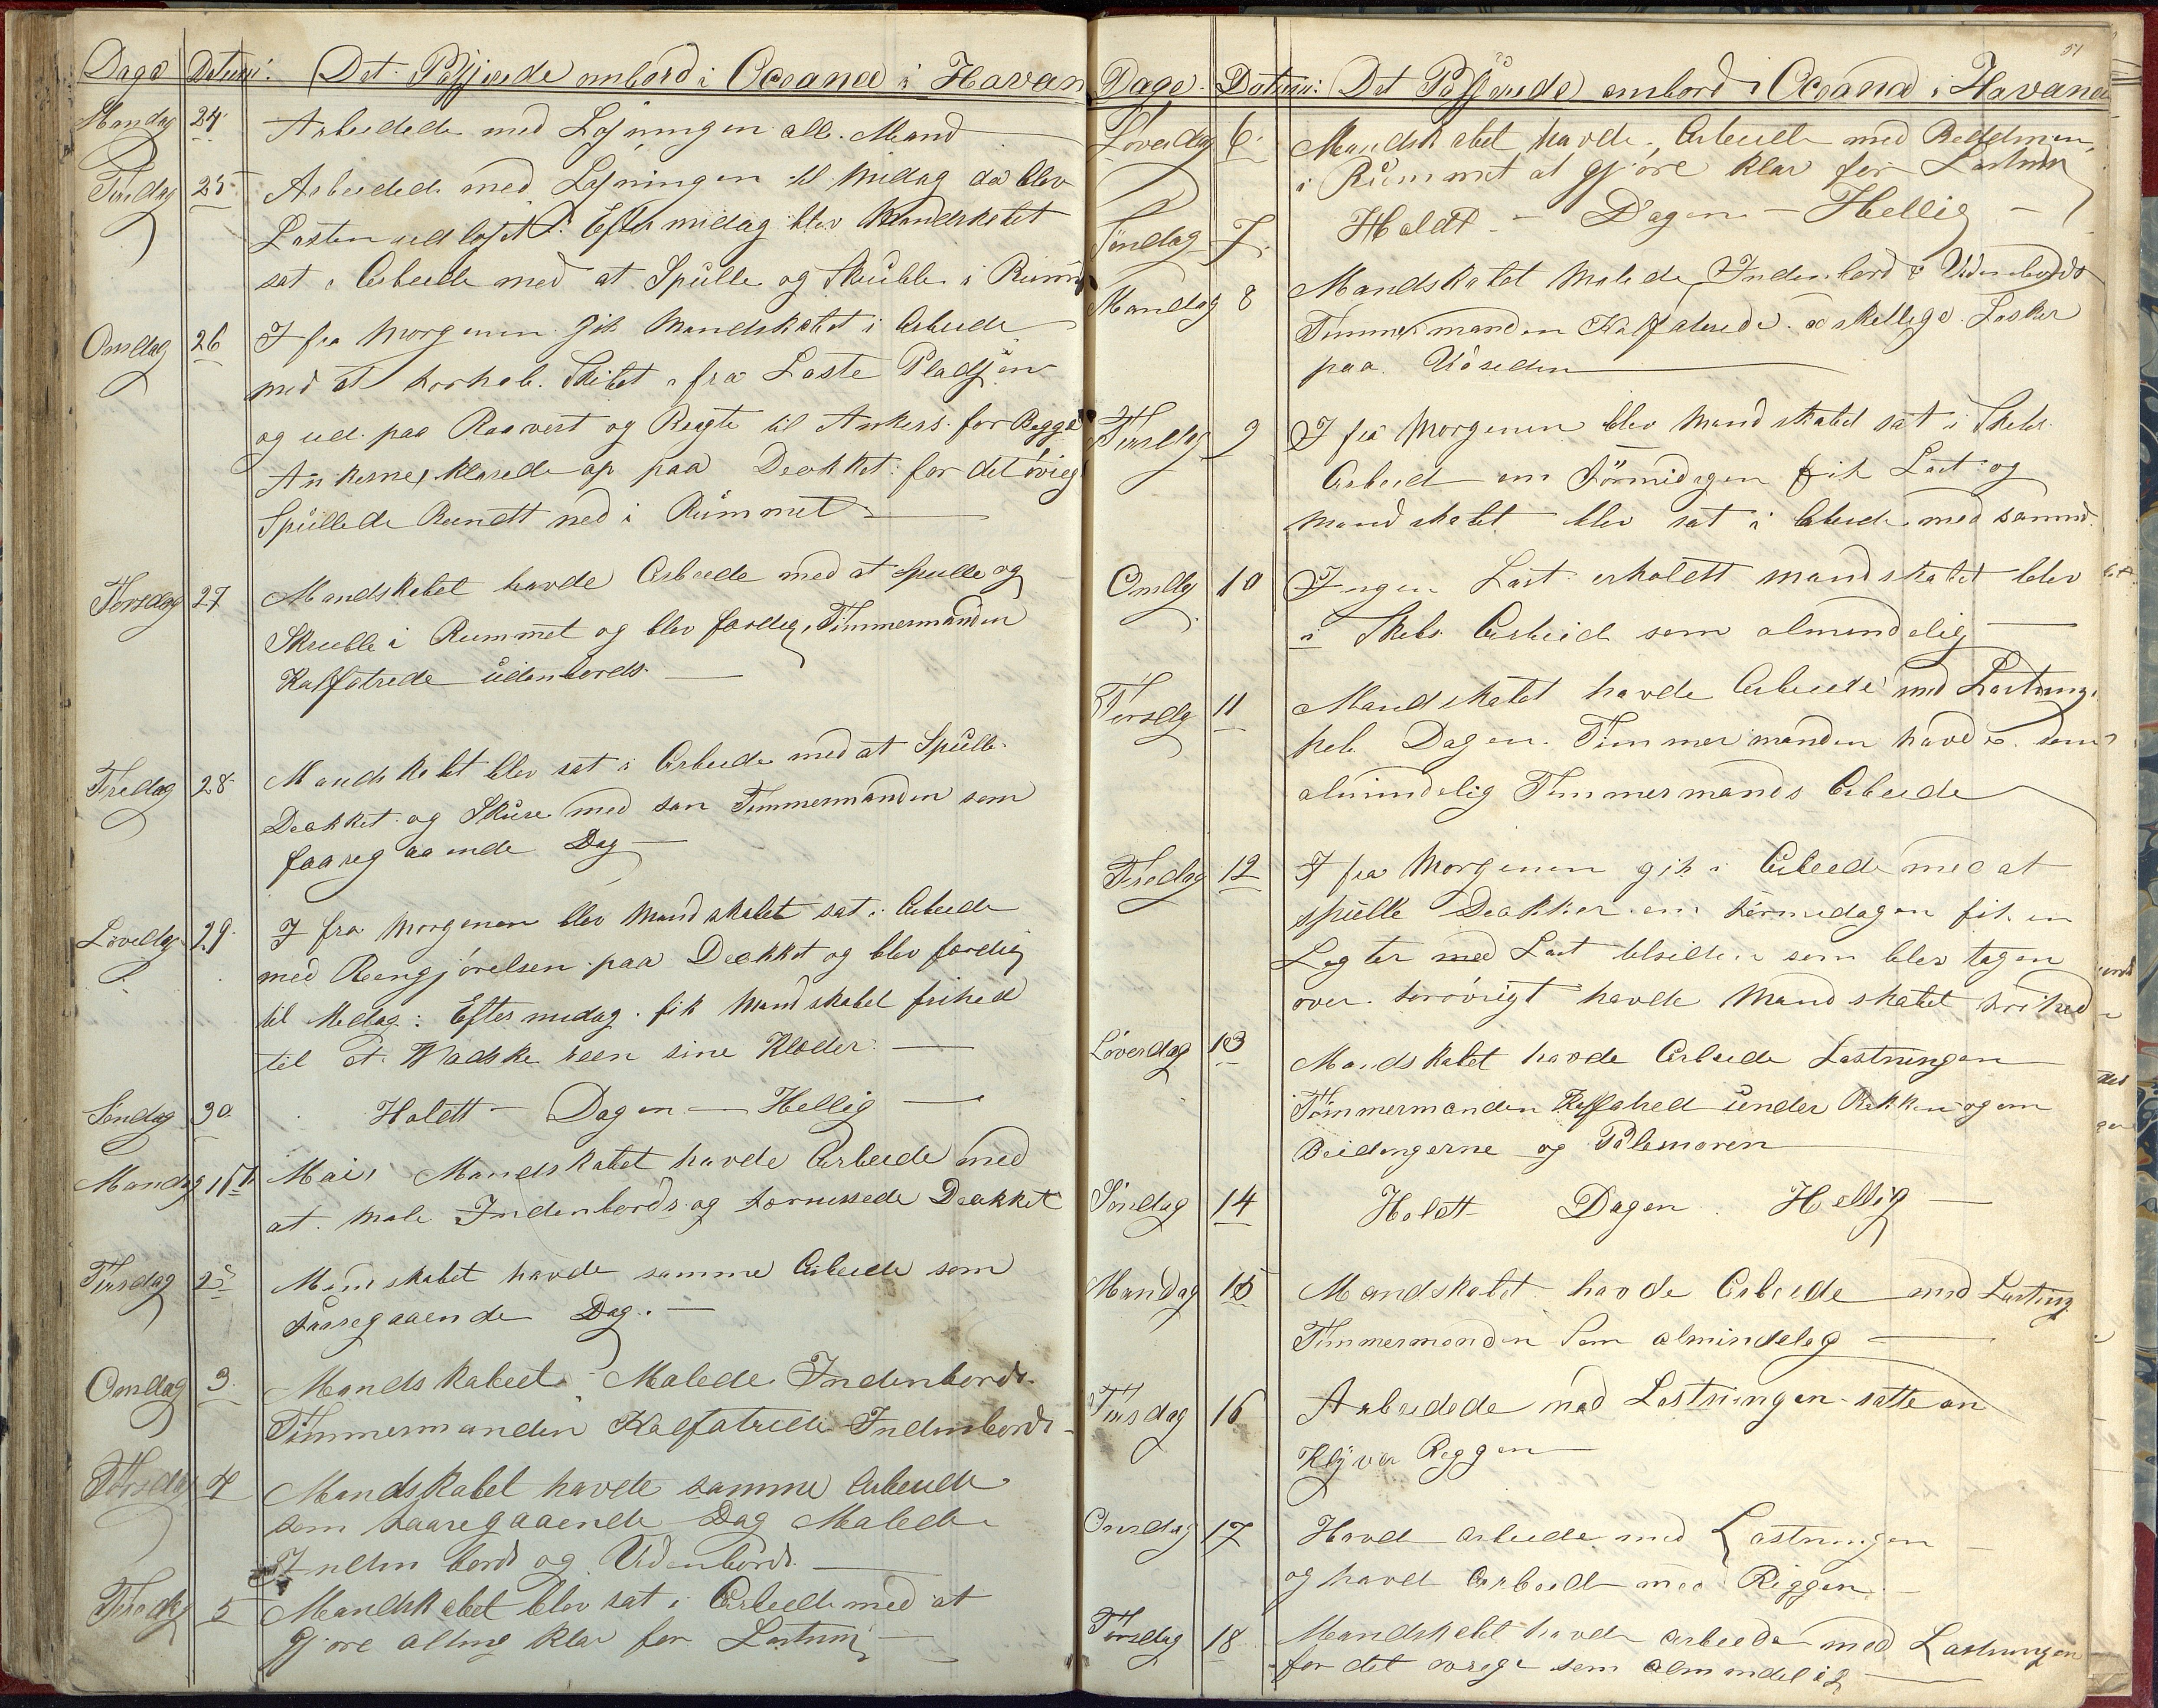 Dage Datum: Det Passjerede ombord i Oceana i Havan
Mandag 24 Arbeidede med Losningen alle Mand
Tirsdag 25 Arbeidede med Losningen til Midag da blev
Lasten udlosset. Eftermidag blev Mandskabet
sat i Arbeide med at Spulle og Skubbe i Rummet
Onsdag 26 I fra Morgenen gik Mandskabet i Arbeide
med at forhale Skibet fra Loste Pladsen
og ud paa og til Ankers for Begge
Ankerne, klarede op paa Deækket for det övrig
Spullede Rundtt ned i Rummet
Torsdag 27 Mandskabet havde Arbeide med at spulle og
Skrubbe i Rummet og blev færdig, Timmermanden
Kalfatrede udenbords
Fredag 28 Mandskabet blev sat i Arbeide med at Spulle
Deækket og Skure med san Timmermanden som
faaregaaende Dag
Löverdag 29 I fra Morgenen blev Mandskabet sat i Arbeide
med Reengjörelsen paa Deækket og blev færdig
til Midag: Eftermidag fik Mandskabet frihed
til at Vadske reen sine Klæder
Söndag 30 Holdtt Dagen Hellig
Mandag 1st Mai Mandskabet havde Arbeide med
at Male Indenbords og færnissede Deækket
Tirsdag 2 Mandskabet havde samme Arbeide som
faaregaaende Dag.
Onsdag 3 Mandskabet Malede Indenbords
Timmermanden Kalfatrede Indenbords
Torsdag 4 Mandskabet havde samme Arbeide
som faaregaaende Dag Malede
Inden bords og Udenbords
Fredag 5 Mandskabet blev sat i Arbeide med at
Gjöre alting klar for Lastning
51
Dage Datum: Det Passerede ombord i Oceana i Havana
Löverdag 6 Mandskabet havde Arbeide med
i Rummet at gjöre klar for Lastning
Söndag 7 Holdt Dagen Hellig
Mandag 8 Mandskabet Malede Indenbord & Udenbords
Timmermanden Kalfaterede adskellige Lasker
paa
Tirsdag 9 I fra Morgenen blev Mandskabet sat i Skibs
Arbeid om Formidagen fik Last og
Mandskabet blev sat i Arbeide med samme
Onsdag 10 Ingen Last erholdtt Mandskabet blev
i Skibs Arbeid som almendelig
Torsdag 11 Mandskabet havde Arbeide med Lastning
hele Dagen. Timmermanden havde som
almindelig Timmermands Arbeide
Fredag 12 I fra Morgenen gik i Arbeide med at
spulle Deækker om formedagen fik en
Legter med Last som blev tagen
over forövrigt havde Mandskabet frihed
Löverdag 13 Mandskabet havde Arbeide Lastningen
Timmermanden Kalfatred under og om
Beidingerne og
Söndag 14 Holdtt Dagen Hellig
Mandag 15 Mandskabet havde Arbeide med Lasting
Timmermanden som almindeleg
Tirsdag 16 Arbeidede med Lastningen satte an
Klyver Reggen
Onsdag 17 Havd Arbeide med Lastningen
og havd Arbeide med Riggen
Torsdag 18 Mandskabet havde Arbeede med Lastningen
for det övrege som almendelig